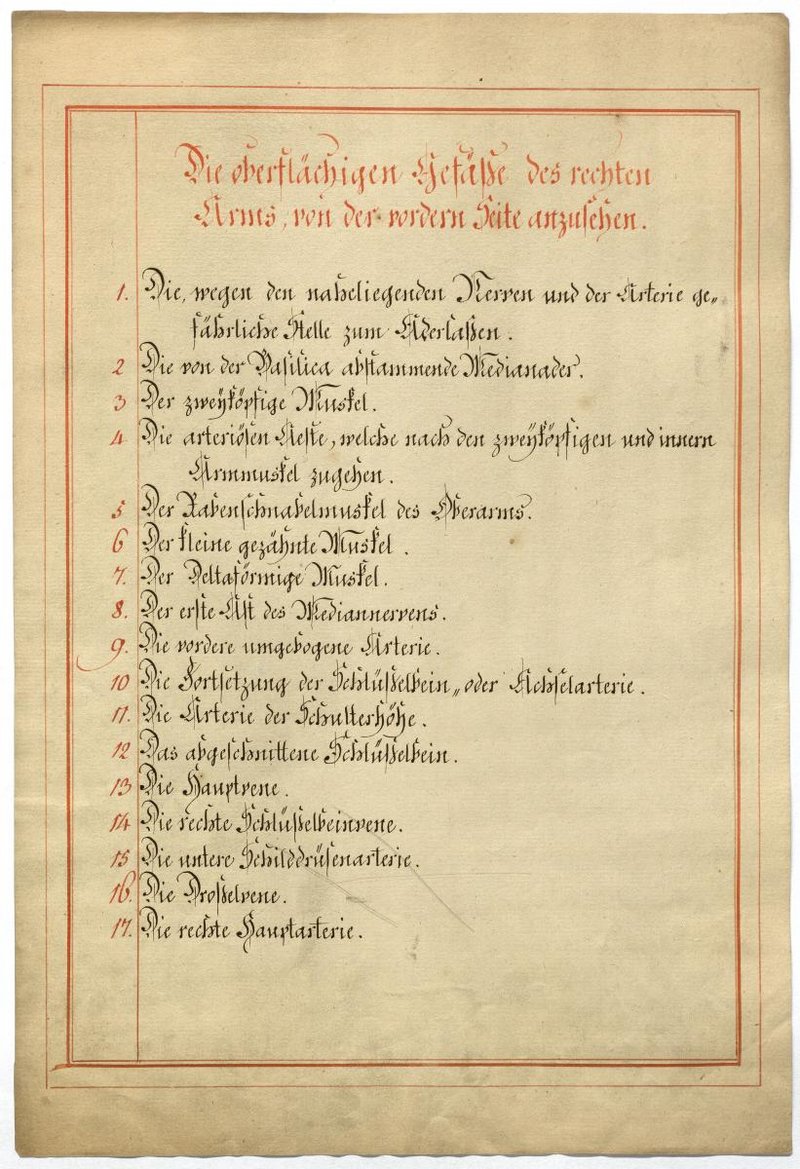 Die oberflächigen Gefäße des rechten
Arms, von der vordern Seite anzusehen.
1. Die, wegen den naheliegenden Nerven und der Arterie ge-
fährliche Stelle zum Aderlaßen.
2 Die von der Basilica abstammende Medianader.
3 Der zweyköpfige Muskel.
4 Die arteriösen Aeste, welche nach den zweyköpfigen und innern
Armmuskel zugehen.
5 Der Rabenschnabelmuskel des Oberarms.
6 Der kleine gezähnte Muskel.
7. Der Deltaförmige Muskel.
8. Der erste Ast des Mediannervens.
9. Die vordere umgebogene Arterie.
10 Die Fortsetzung der Schlüßelbein- oder Achselarterie.
11. Die Arterie der Schulterhöhe.
12 Das abgeschnittene Schlüßelbein.
13 Die Hauptvene.
14 Die rechte Schlüßelbeinvene.
15 Die untere Schilddrüsenarterie.
16. Die Droßelvene.
17. Die rechte Hauptarterie.